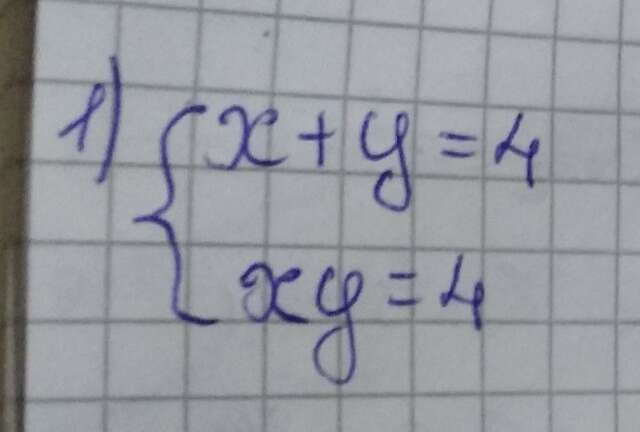 1) x + y = 4
xy = 4